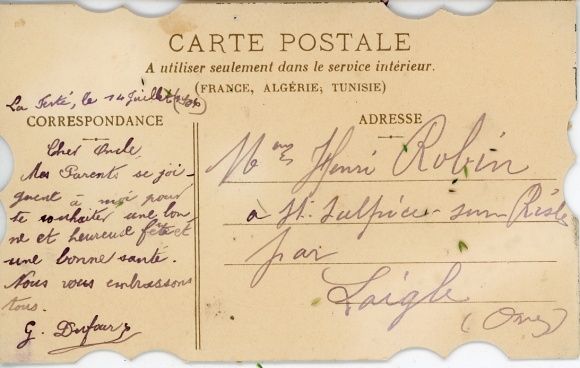 CARTE POSTALE
A utiliser seulement dans le service intérieur.
(FRANCE, ALGÉRIE, TUNISIE)
La Ferté, le 14 Juillet
CORRESPONDANCE
Cher Oncle
Mes Parents se joi-
gnent à moi pour
te souhaiter une bon
ne et heureuse fête et
une bonne santé.
Nous vous embrassons
tous.
G. Dufour
ADRESSE
Henri Robin
a St. Sulpice-sur-Risle
par
Laigle
(Orne)